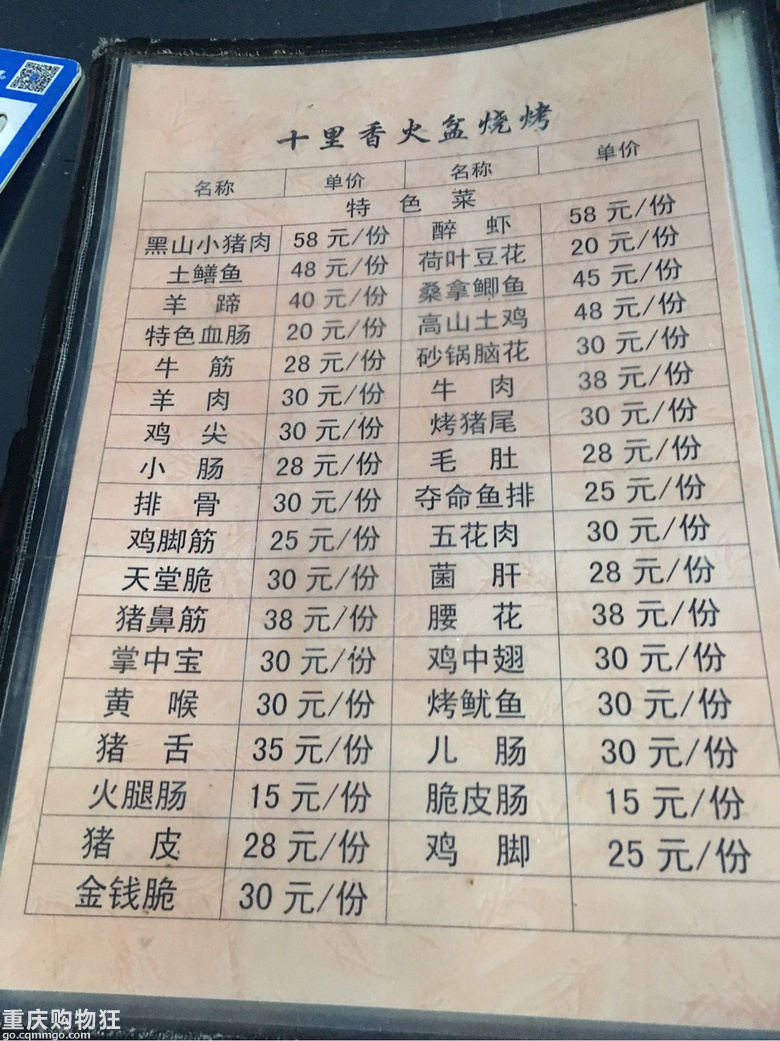 十里香火盆烧烤
名称 单价 名称 单价
特色菜
黑山小猪肉 58元/份 醉虾 58元/份
土鳝鱼 48元/份 荷叶豆花 20元/份
羊蹄 40元/份 桑拿鲫鱼 45元/份
特色血肠 20元/份 高山土鸡 48元/份
牛筋 28元/份 砂锅脑花 30元/份
羊肉 30元/份 牛肉 38元/份
鸡尖 30元/份 烤猪尾 30元/份
小肠 28元/份 毛肚 28元/份
排骨 30元/份 夺命鱼排 25元/份
鸡脚筋 25元/份 五花肉 30元/份
天堂脆 30元/份 菌肝 28元/份
猪鼻筋 38元/份 腰花 38元/份
掌中宝 30元/份 鸡中翅 30元/份
黄喉 30元/份 烤鱿鱼 30元/份
猪舌 35元/份 儿肠 30元/份
火腿肠 15元/份 脆皮肠 15元/份
猪皮 28元/份 鸡脚 25元/份
金钱脆 30元/份
重庆购物狂
go.cqmmgo.com